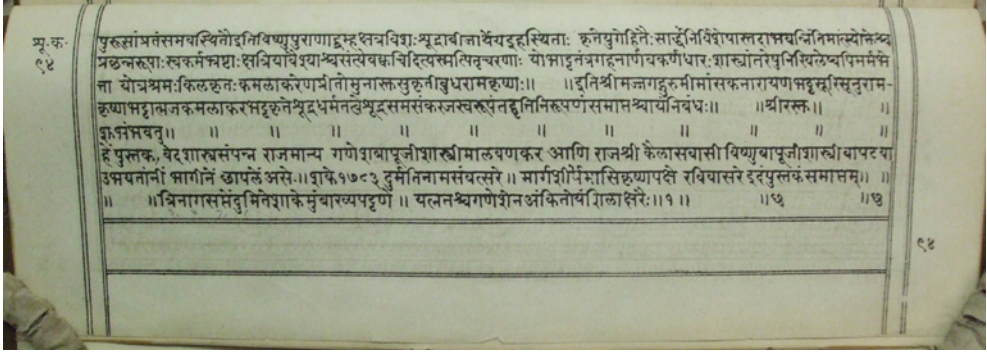 शू. क.
९४
पुरूसांप्रतंसमवस्थितौइतिविष्णुपुराणाद्ब्रह्मक्षत्रविशःशूद्राबीजार्थेयइहस्थिताः कृतेयुगेहितैःसार्द्धंनिर्विशेषास्तदाभवन्नितिमात्स्योक्तेश्च
प्रछन्नरूपाःस्वकर्मभ्रष्टाःक्षत्रियावैश्याश्चसंत्येवक्वचिदित्यस्मत्पितृचरणाः योभाट्टतंत्रगहनार्णवकर्णधारःशास्त्रांतरेषुनिखिलेष्वपिमर्मभे
त्ता योत्रश्रमःकिलकृतःकमलाकरेणप्रीतोमुनास्तुसुकृतीबुधरामकृष्णः॥ ॥इतिश्रीमज्जगद्गुरुमीमांसकनारायणभट्टसूरिसूनुराम-
कृष्णभट्टात्मजकमलाकरभट्टकृतेशूद्रधर्मतत्वेशूद्रसमसंकरजस्वरूपंतद्वृत्तिनिरूपणंसमाप्तश्चायंनिबंधः॥ ॥श्रीरस्तु॥ ॥
शुभंभवतु॥ ॥ ॥ ॥ ॥ ॥ ॥ ॥ ॥ ॥ ॥
हें पुस्तक, वेदशास्त्रसंपन्न राजमान्य गणेशबापूजीशास्त्रीमालवणकर आणि राजश्री कैलासवासी विष्णुबापूजीशास्त्रीबापट या
उभयतांनीं भागीनें छापलें असे॥शाके१७८३ दुर्मतिनामसंवत्सरे॥ मार्गशीर्षमासिकृष्णपक्षे रविवासरे इदंपुस्तकंसमाप्तम्॥ ॥
॥ ॥त्रिनागसप्तेंदुमितेशाकेमुंबाख्यपट्टणे॥ यत्नतश्चगणेशेनअंकितोयंशिलाक्षरैः॥१॥ ॥छ ॥छ
९४